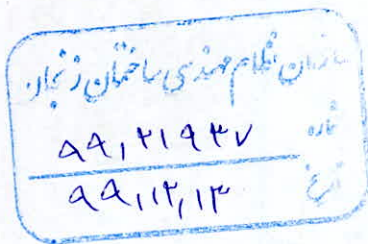 سازمان نظام مهندسی ساختمان زنجان
شماره ۹۹,۲۱۹۳۷
تاریخ ۹۹,۱۲,۱۳